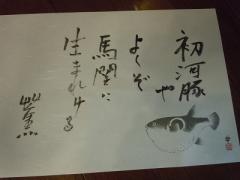 初河豚や
よくぞ
馬関に
生まれける